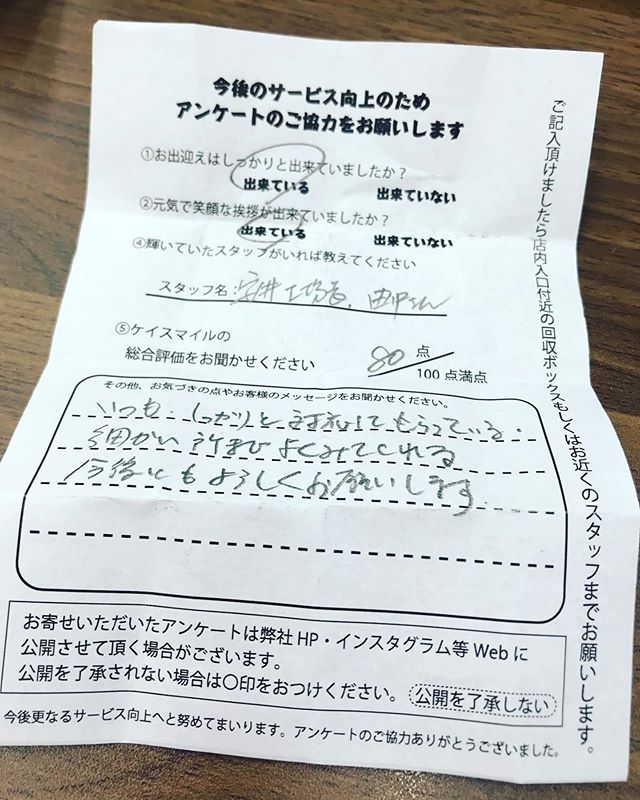 今後のサービス向上のため
アンケートのご協力をお願いします
①お出迎えはしっかりと出来ていましたか?
出来ている 出来ていない
②元気で笑顔な挨拶が出来ていましたか?
出来ている 出来ていない
④輝いていたスタッフがいれば教えてください
スタッフ名:安井工場長、田中さん
⑤ケイスマイルの
総合評価をお聞かせください
80点
100点満点
その他、お気づきの点やお客様のメッセージをお聞かせください。
いつも、しっかりと対応してもらっている。
細かい所までよくみてくれる
今後ともよろしくお願いします
お寄せいただいたアンケートは弊社HP・インスタグラム等Webに
公開させて頂く場合がございます。
公開を了承されない場合は〇印をおつけください。 公開を了承しない
今後更なるサービス向上へと努めてまいります。アンケートのご協力ありがとうございました。
ご記入頂けましたら店内入口付近の回収ボックスもしくはお近くのスタッフまでお願いします。